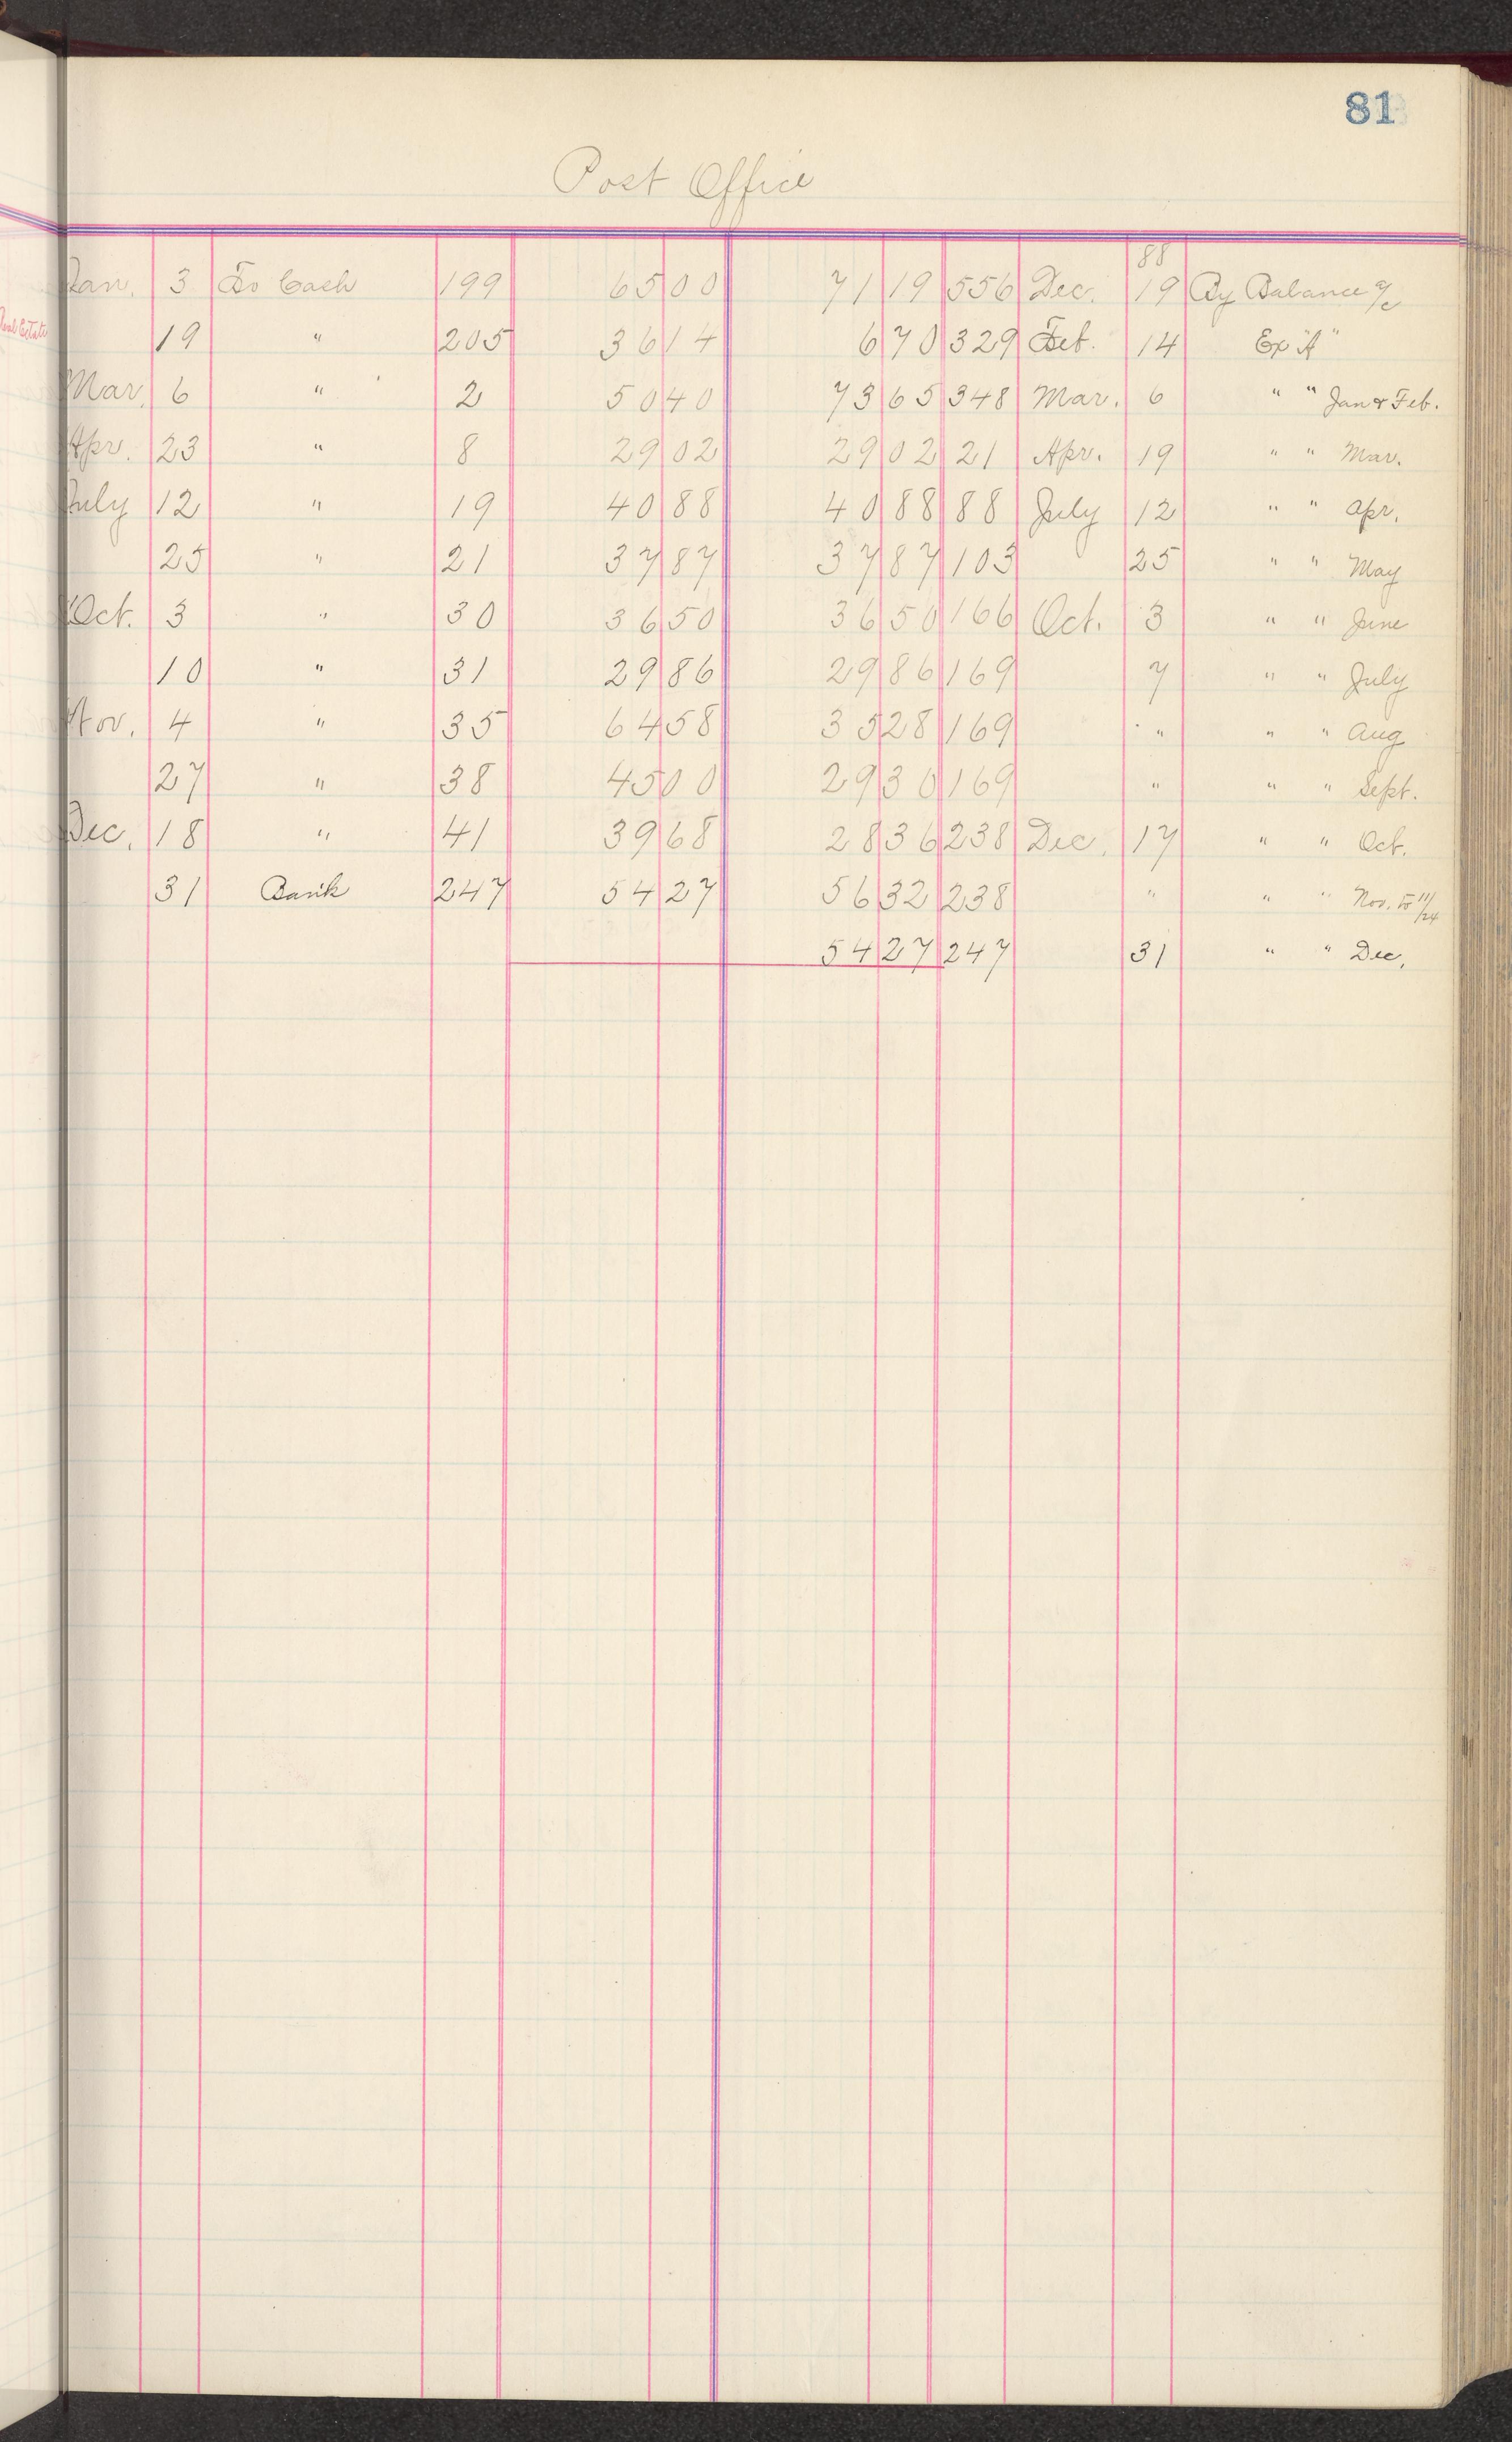 81
Post Office
88
Jan. 3 To Cash 199 65 00 71 19 556 Dec. 19 By Balance a/c
Real Estate
19 " 205 36 14 6 70 329 Feb. 14 Ex "A"
Mar. 6 " 2 50 40 73 65 348 Mar. 6 " " Jan & Feb.
Apr. 23 " 8 29 02 29 02 21 Apr. 19 " " Mar.
July 12 " 19 40 88 40 88 88 July 12 " " Apr.
25 " 21 37 87 37 87 103 25 " " May
Oct. 3 " 30 36 50 36 50 166 Oct. 3 " " June
10 " 31 29 86 29 86 169 7 " " July
Nov. 4 " 35 64 58 35 28 169 " " " Aug
27 " 38 45 00 29 30 169 " " " Sept.
Dec. 18 " 41 39 68 28 36 238 Dec. 17 " " Oct.
31 Bank 247 54 27 56 32 238 " " " Nov. to 11/24
54 27 247 31 " " Dec.